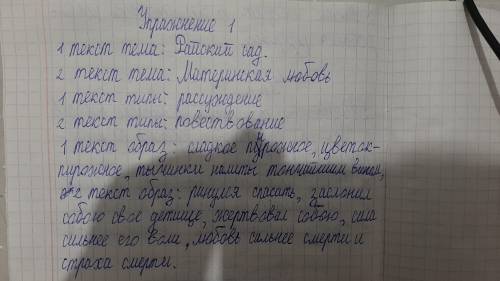 Упражнение 1
1 текст тема: Райский сад.
2 текст тема: Материнская любовь
1 текст типы: рассуждение
2 текст типы: повествование
1 текст образ: сладкое пирожное, цветок-
пирожное, тычинки налиты тончайшим вином,
2 текст образ: ринулся спасать, заслонил
собою своё детище, жертвовал собою, сила
сильнее его воли, любовь сильнее смерти и
страха смерти.